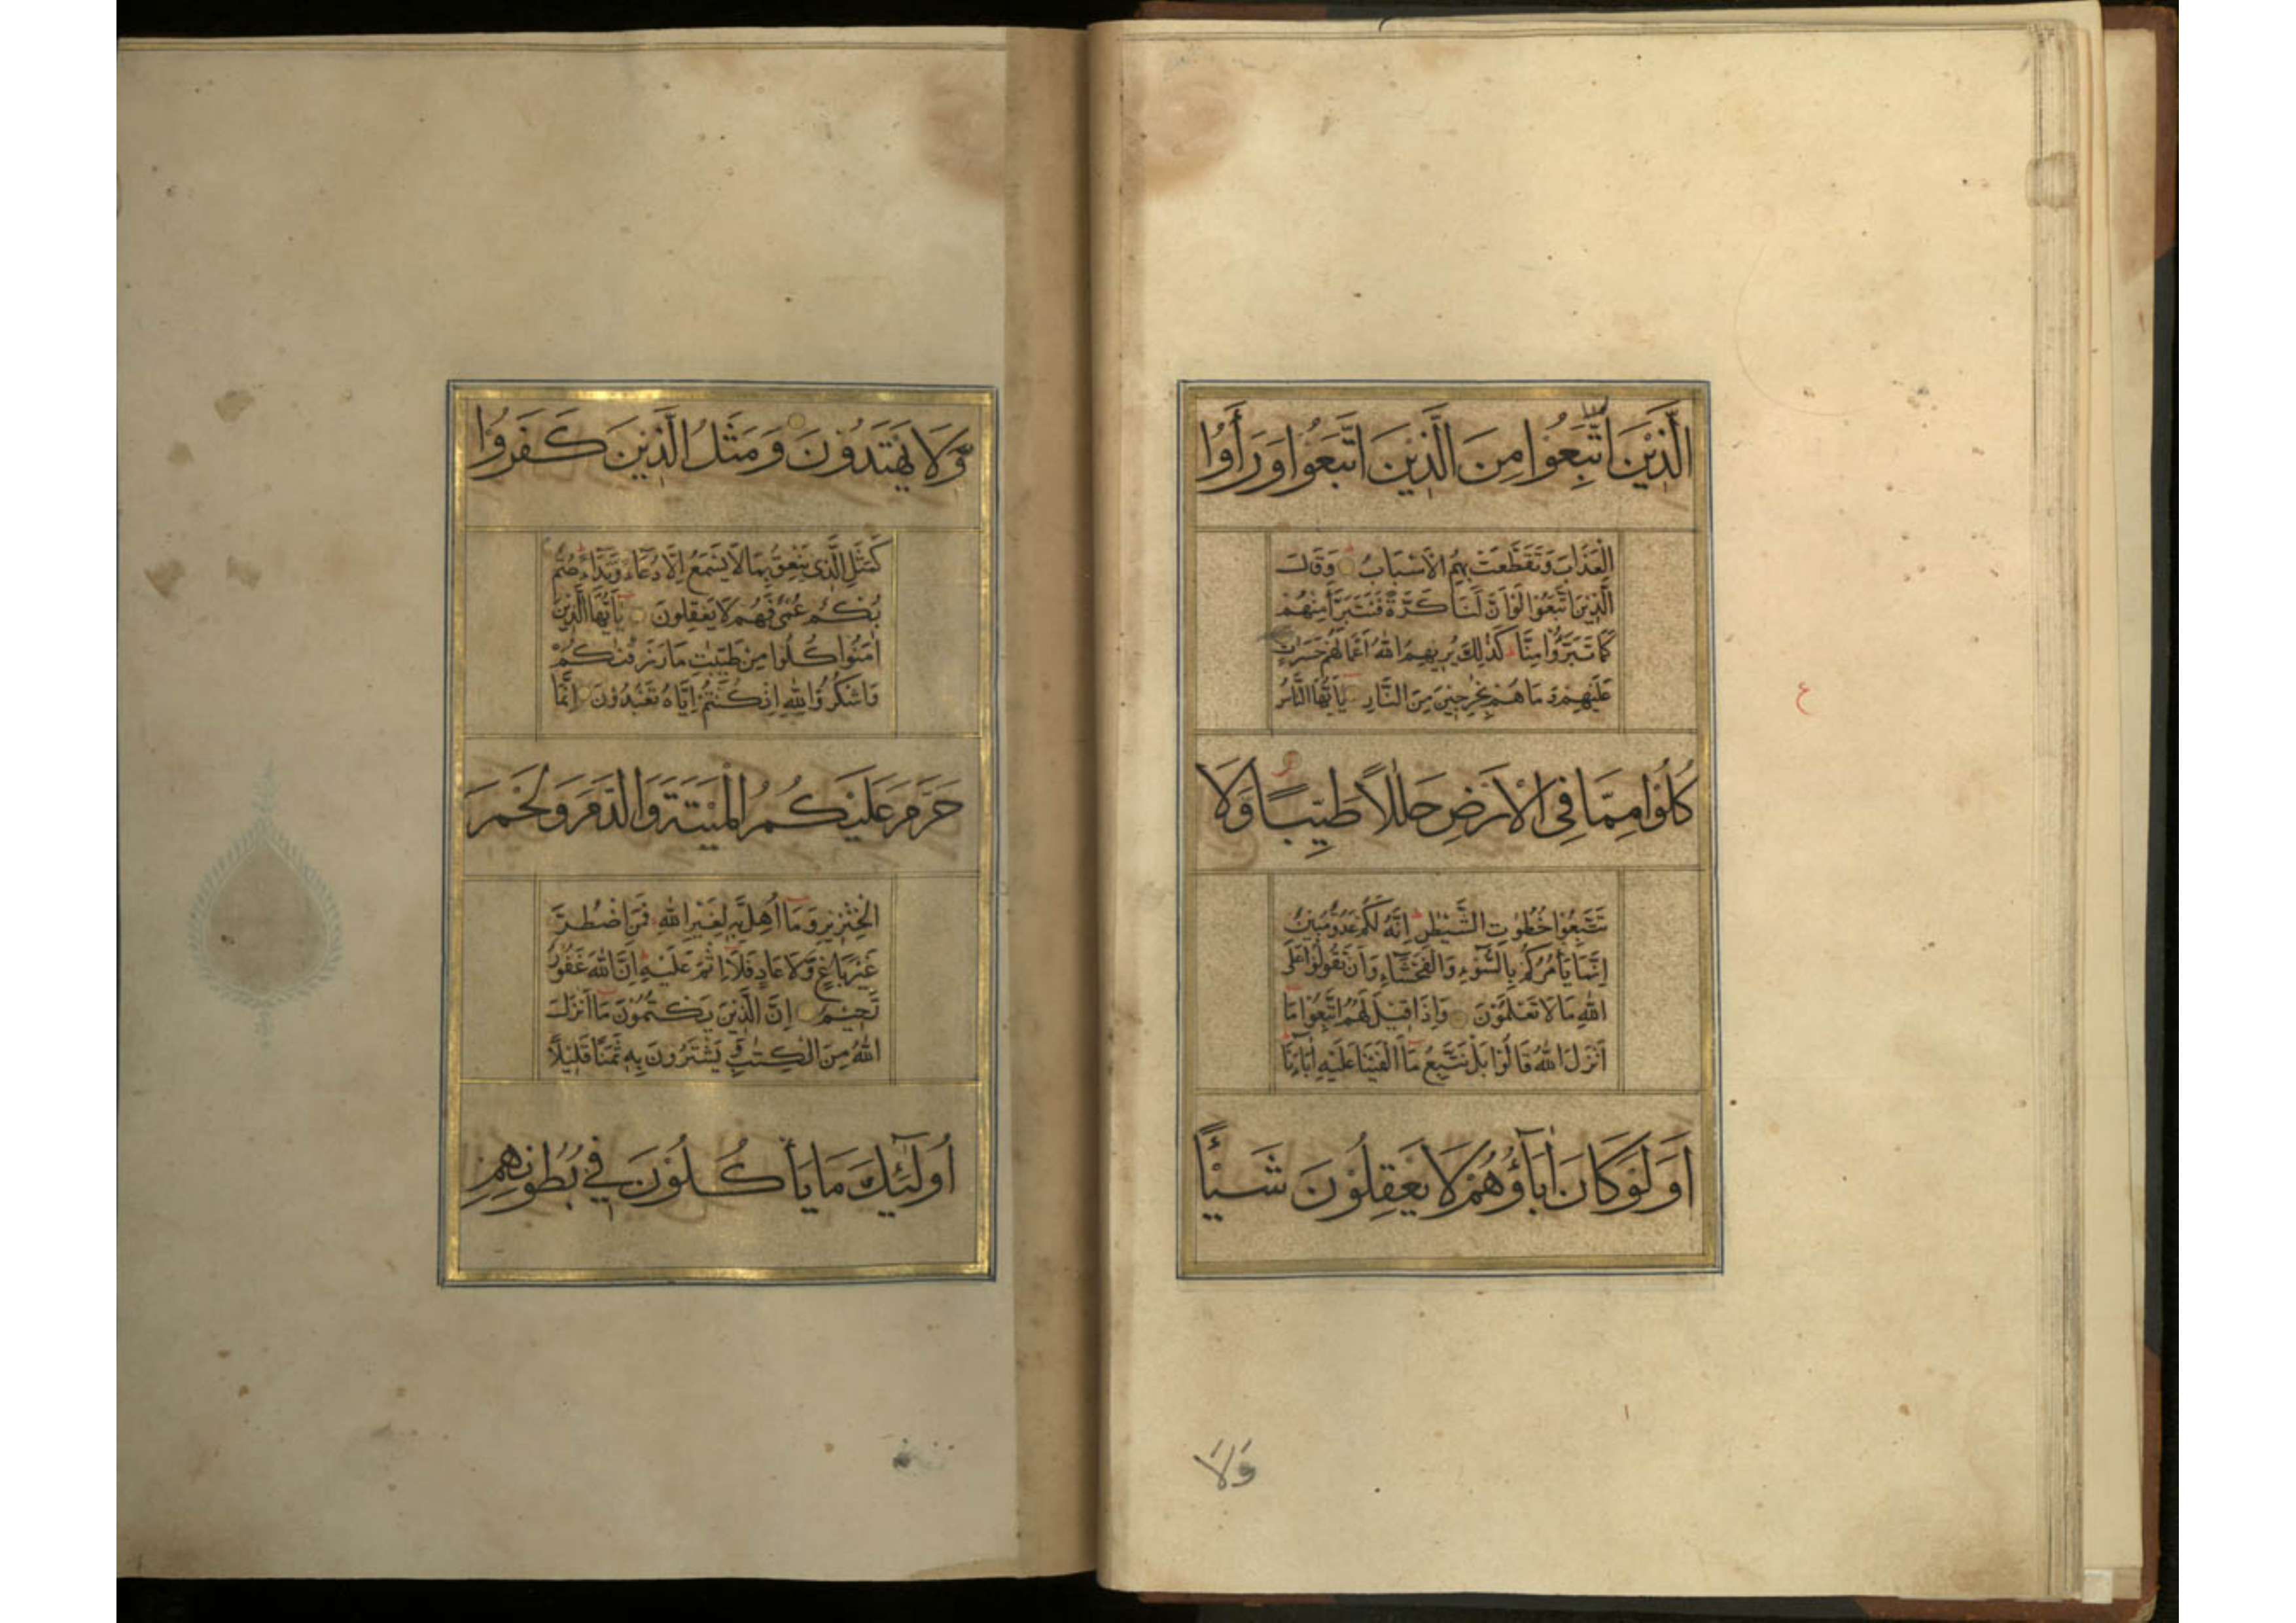 الَّذِيْنَ اتُّبِعُوْا مِنَ الَّذِيْنَ اتَّبَعُوْا وَرَأَوُا
الْعَذَابَ وَتَقَطَّعَتْ بِهِمُ الْاَسْبَابُ وَقَالَ
الَّذِيْنَ اتَّبَعُوْا لَوْ اَنَّ لَنَا كَرَّةً فَنَتَبَرَّأَ مِنْهُمْ
كَمَا تَبَرَّؤُا مِنَّا كَذٰلِكَ يُرِيْهِمُ اللهُ اَعْمَالَهُمْ حَسَرٰتٍ
عَلَيْهِمْ وَمَا هُمْ بِخٰرِجِيْنَ مِنَ النَّارِ يٰاَيُّهَا النَّاسُ
كُلُوْا مِمَّا فِى الْاَرْضِ حَلٰلًا طَيِّبًا وَلَا
تَتَّبِعُوْا خُطُوٰتِ الشَّيْطٰنِ اِنَّهُ لَكُمْ عَدُوٌّ مُبِيْنٌ
اِنَّمَا يَأْمُرُكُمْ بِالسُّوْءِ وَالْفَحْشَاءِ وَاَنْ تَقُوْلُوْا عَلَى
اللهِ مَا لَا تَعْلَمُوْنَ وَاِذَا قِيْلَ لَهُمُ اتَّبِعُوْا مَا
اَنْزَلَ اللهُ قَالُوْا بَلْ نَتَّبِعُ مَا اَلْفَيْنَا عَلَيْهِ اٰبَاءَنَا
اَوَلَوْ كَانَ اٰبَاؤُهُمْ لَا يَعْقِلُوْنَ شَيْئًا
ع
وَلَا
وَّلَا يَهْتَدُوْنَ وَمَثَلُ الَّذِيْنَ كَفَرُوْا
كَمَثَلِ الَّذِى يَنْعِقُ بِمَا لَا يَسْمَعُ اِلَّا دُعَاءً وَّنِدَاءً صُمٌّ
بُكْمٌ عُمْىٌ فَهُمْ لَا يَعْقِلُوْنَ يٰاَيُّهَا الَّذِيْنَ
اٰمَنُوْا كُلُوْا مِنْ طَيِّبٰتِ مَا رَزَقْنٰكُمْ
وَاشْكُرُوْا لِلّٰهِ اِنْ كُنْتُمْ اِيَّاهُ تَعْبُدُوْنَ اِنَّمَا
حَرَّمَ عَلَيْكُمُ الْمَيْتَةَ وَالدَّمَ وَلَحْمَ
الْخِنْزِيْرِ وَمَا اُهِلَّ بِهِ لِغَيْرِ اللهِ فَمَنِ اضْطُرَّ
غَيْرَ بَاغٍ وَّلَا عَادٍ فَلَا اِثْمَ عَلَيْهِ اِنَّ اللهَ غَفُوْرٌ
رَّحِيْمٌ اِنَّ الَّذِيْنَ يَكْتُمُوْنَ مَا اَنْزَلَ
اللهُ مِنَ الْكِتٰبِ وَ يَشْتَرُوْنَ بِهِ ثَمَنًا قَلِيْلًا
اُولٰئِكَ مَا يَأْكُلُوْنَ فِي بُطُوْنِهِمْ